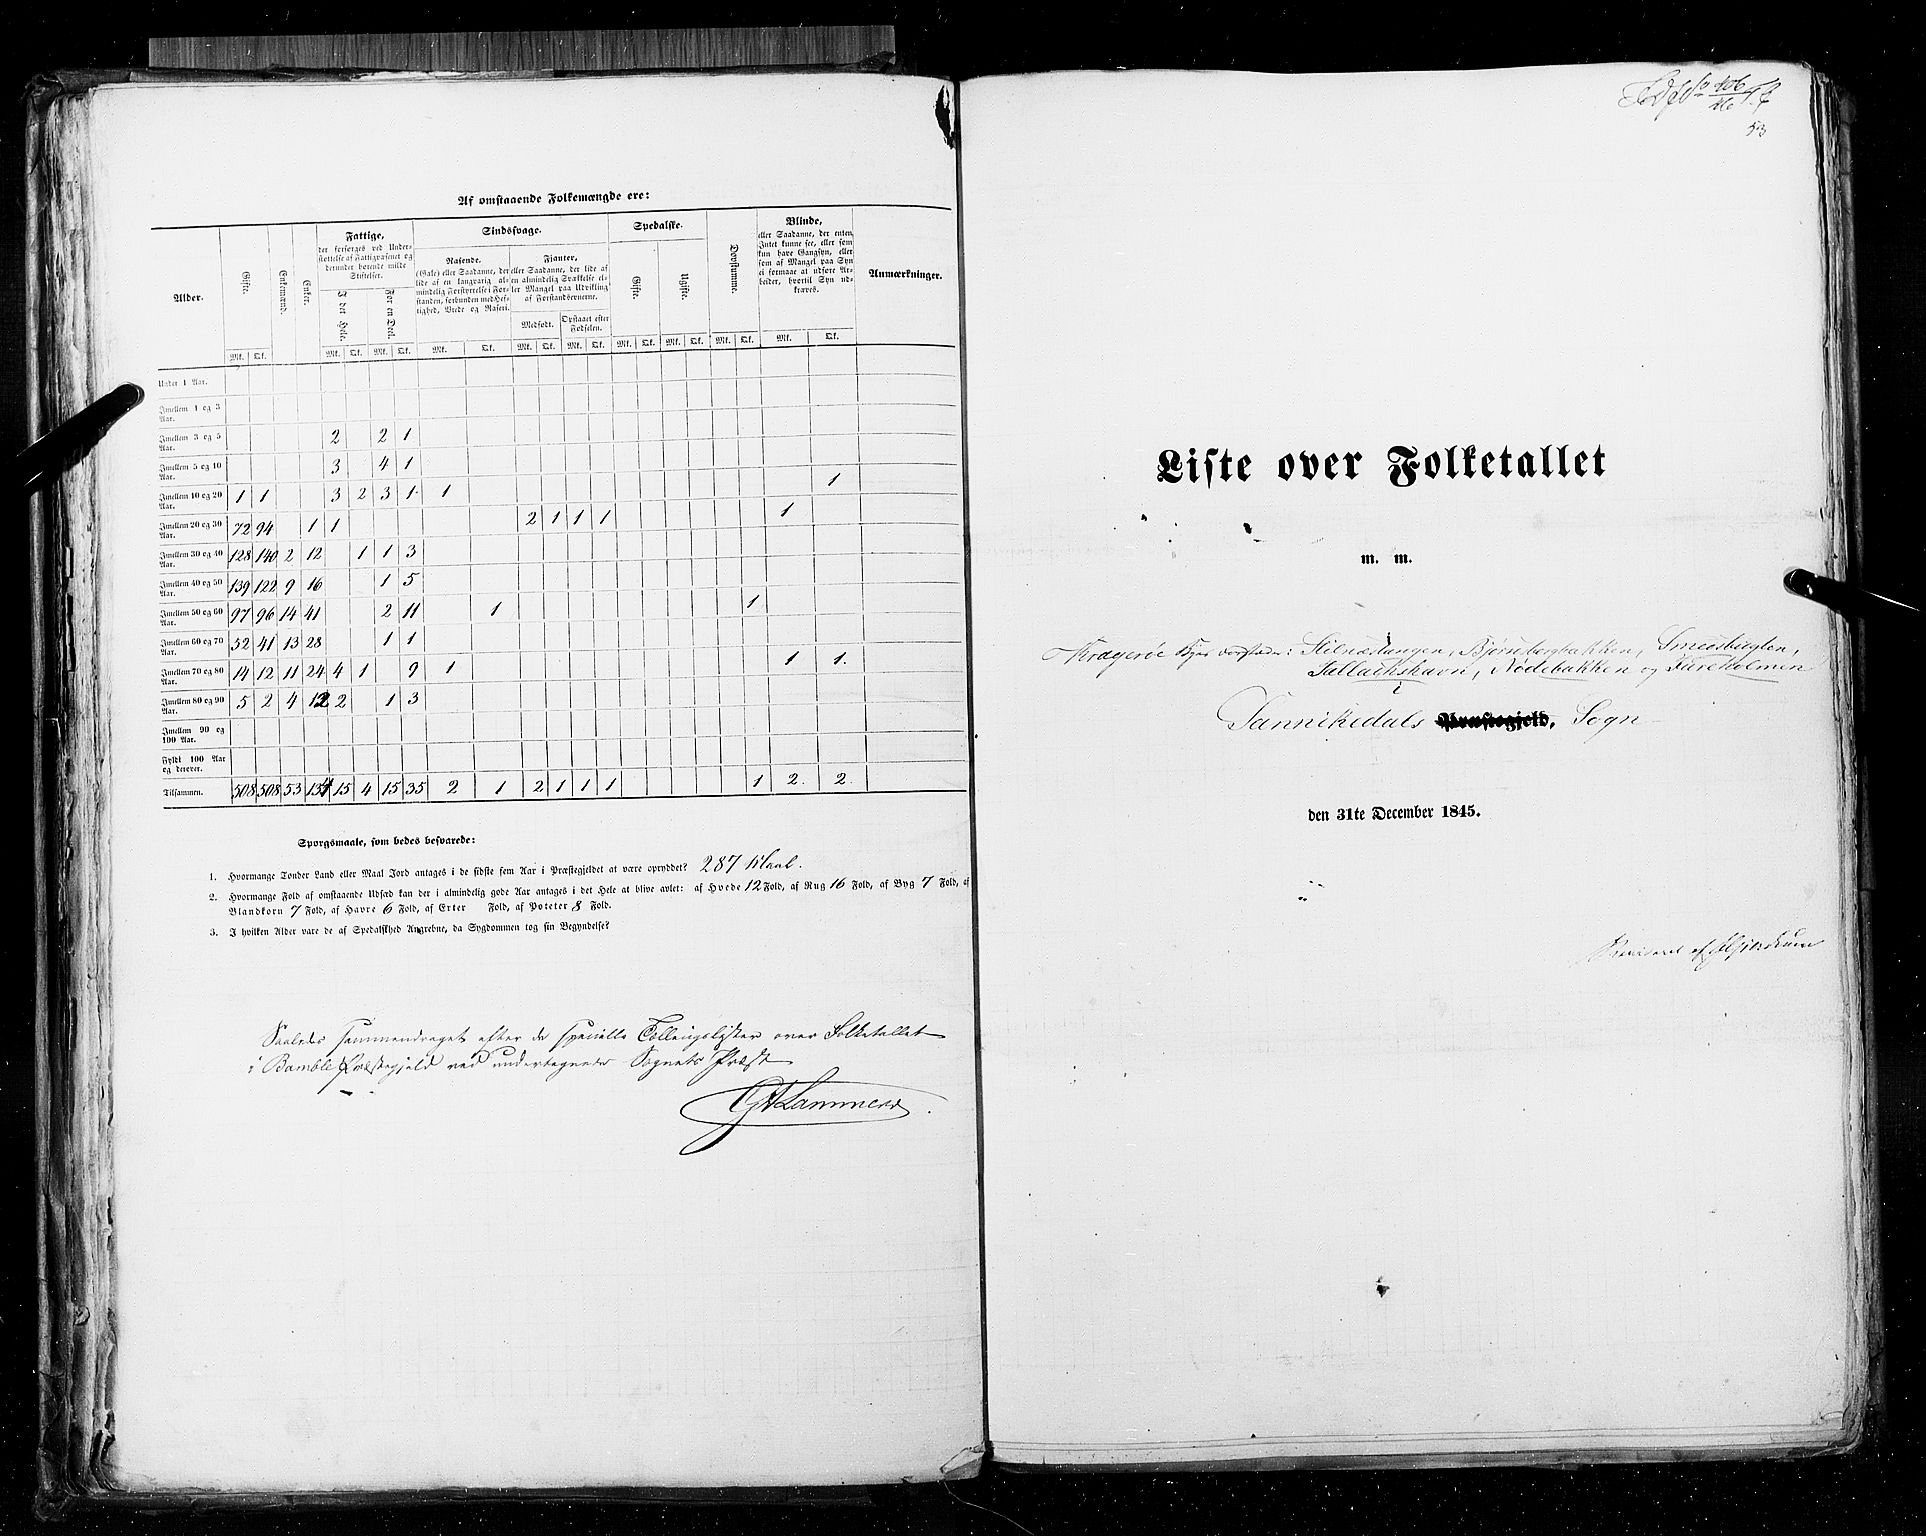 Af omstaaende Folkemængde ere:
Alder. Gifte. Enkemænd. Enker. Fattige, der forsørges ved Understøttelse af Fattigvæsenet og derunder hørende milde Stiftelser. Sindssvage. Spedalske. Døvstumme. Blinde, eller Saadanne, der enten Intet kunne see, eller som kun have Gangsyn, eller som af Mangel paa Syn ei formaae at udføre Arbeider, hvortil Syn udkræves. Anmærkninger.
I det Hele. For en Deel. Rasende. (Gale) eller Saadanne, der lide af en langvarig almindelig Forstyrrelse i Forstanden, forbunden med Heftighed, Vrede og Raseri. Fianter, eller Saadanne, der lide af en almindelig Svækkelse eller Mangel paa Udvikling af Forstandsevnerne. Gifte. Ugifte.
Medfødt. Opstaaet efter Fødselen.
Mk. Qk. Mk. Qk. Mk. Qk. Mk. Qk. Mk. Qk. Mk. Qk. Mk. Qk. Mk. Qk. Mk. Qk. Mk. Qk.
Under 1 Aar.
Imellem 1 og 3 Aar.
Imellem 3 og 5 Aar. 2 2 1
Imellem 5 og 10 Aar. 3 4 1
Imellem 10 og 20 Aar. 1 1 3 2 3 1 1 1
Imellem 20 og 30 Aar. 72 94 1 1 2 1 1 1 1
Imellem 30 og 40 Aar. 128 140 2 12 1 1 3
Imellem 40 og 50 Aar. 139 122 9 16 1 5
Imellem 50 og 60 Aar. 97 96 14 41 2 11 1 1
Imellem 60 og 70 Aar. 52 41 13 28 1 1
Imellem 70 og 80 Aar. 14 12 11 24 4 1 9 1 1 1.
Imellem 80 og 90 Aar. 5 2 4 12 2 1 3
Imellem 90 og 100 Aar.
Fyldt 100 Aar og derover.
Tilsammen. 508 508 53 134 15 4 15 35 2 1 2 1 1 1 1 2. 2.
Spørgsmaale, som bedes besvarede:
1. Hvormange Tønder Land eller Maal Jord antages i de sidste fem Aar i Præstegjeldet at være opryddet? 287 Maal.
2. Hvormange Fold af omstaaende Udsæd kan der i almindelig gode Aar antages i det Hele at blive avlet: af Hvede 12 Fold, af Rug 16 Fold, af Byg 7 Fold, af
Blandkorn 7 Fold, af Havre 6 Fold, af Erter Fold, af Poteter 8 Fold.
3. I hvilken Alder vare de af Spedalskhed Angrebne, da Sygdommen tog sin Begyndelse?
Saaledes sammendraget efter de specielle Tællingslister over Folketallet
i Bamble Præstegjeld ved undertegnede Sognets Præst
G A Lammers
53
Liste over Folketallet
m. m.
Kragerøe Byes Forstæder: Stilnæstangen, Bjørnbergbakken, Smedsbugten,
Tallakshavn, Nødebakken og Fureholmen
i
Sannikedals Præstegjeld, Sogn
den 31te December 1845.
Revideret af